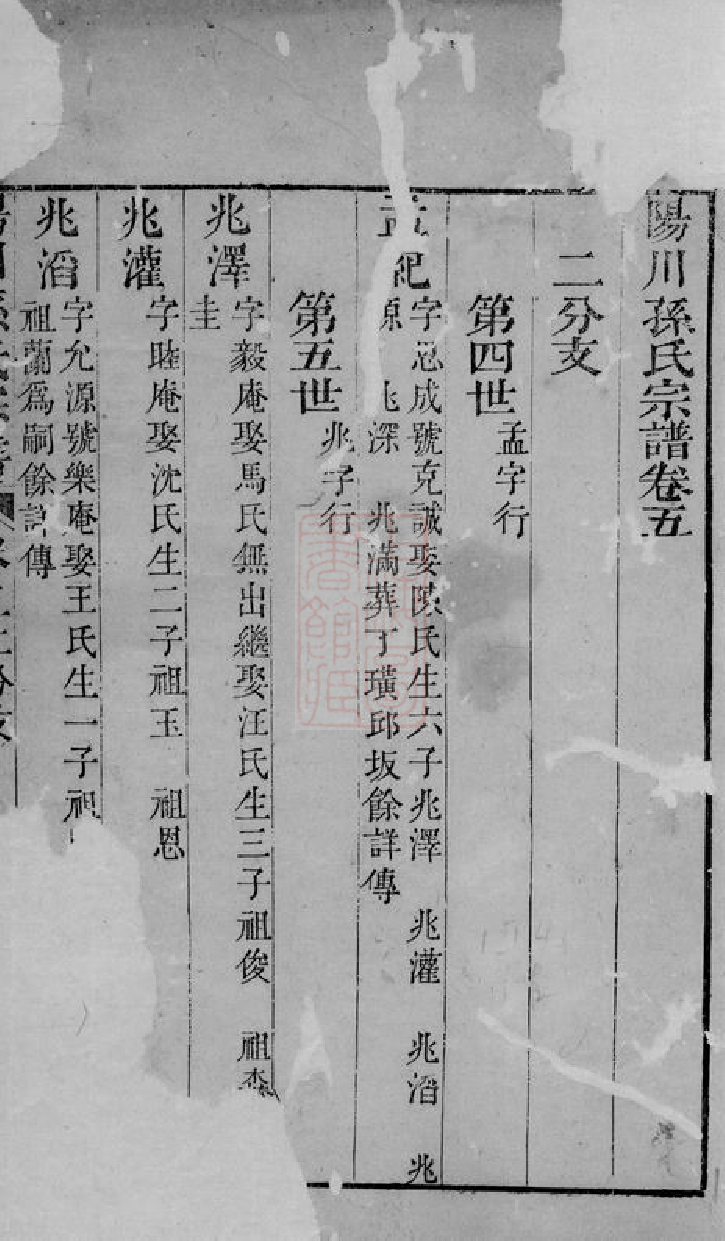 陽川孫氏宗譜卷五
二分支
第四世 孟字行
孟紀 字忠成號克誠娶陳氏生六子兆澤 兆灌 兆滔 兆
源 兆深 兆滿葬丁璜邱坂餘詳傳
第五世 兆字行
兆澤 字毅庵娶馬氏無出繼娶汪氏生三子祖俊 祖
圭
兆灌 字睦庵娶沈氏生二子祖玉 祖恩
兆滔 字允源號樂庵娶王氏生一子祖
祖蘭爲嗣餘詳傳